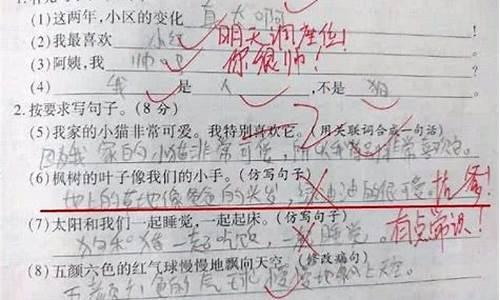 (1)这两年,小区的变化 真大啊
(2)我最喜欢 小红 明天调座位!
(3)阿姨,我 帅吧 你很帅!
(4) 我 是 人 ,不是 狗
2.按要求写句子。(8分)
(5)我家的小猫非常可爱。我特别喜欢它。(用关联词合成一句话)
因为我家的小猫非常可爱,所以我非常喜欢它。
(6)枫树的叶子像我们的小手。(仿写句子)
地上的草地像爸爸的头发,绿油油的很可爱。
(7)太阳和我们一起睡觉,一起起床。(仿写句子) 有点常识!
一起吃饭,一起睡觉。
(8)五颜六色的红气球慢慢地飘向天空。(修改病句)
五颜六色的气球慢慢地飘上天空。